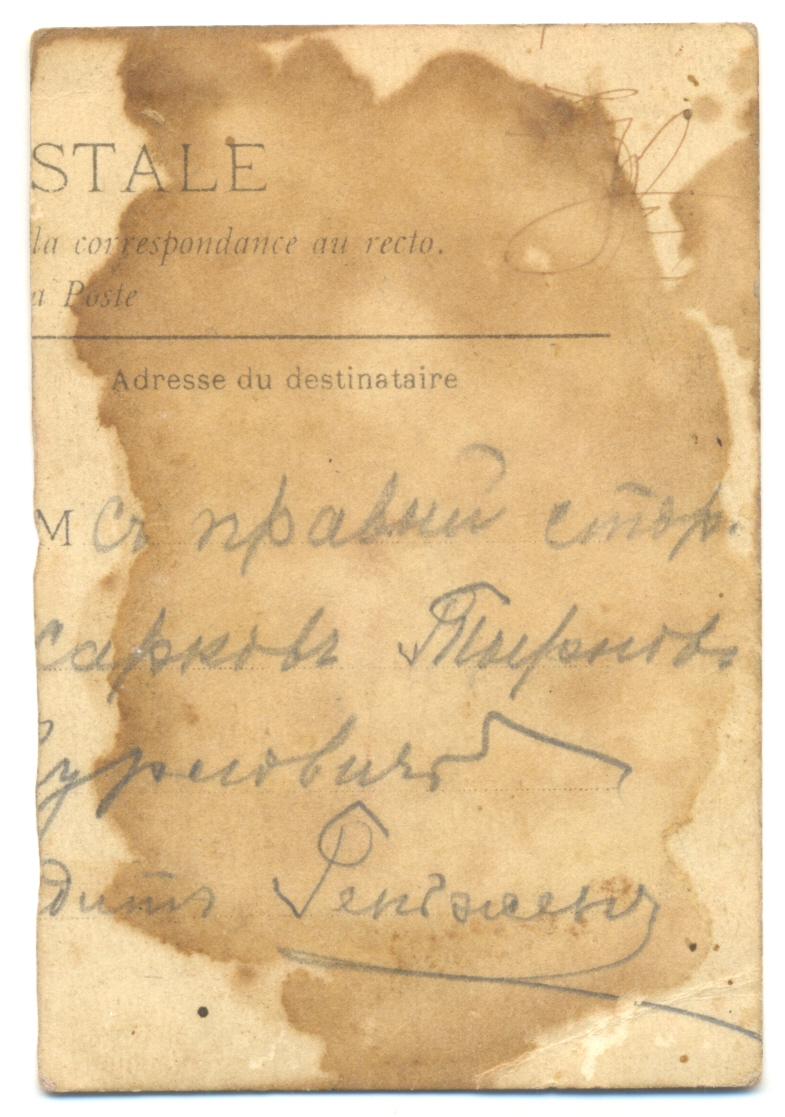 STALE
la correspondance au recto.
a Poste
Adresse du destinataire
M Съ правой стор.
сарковъ
урновичъ
дитъ